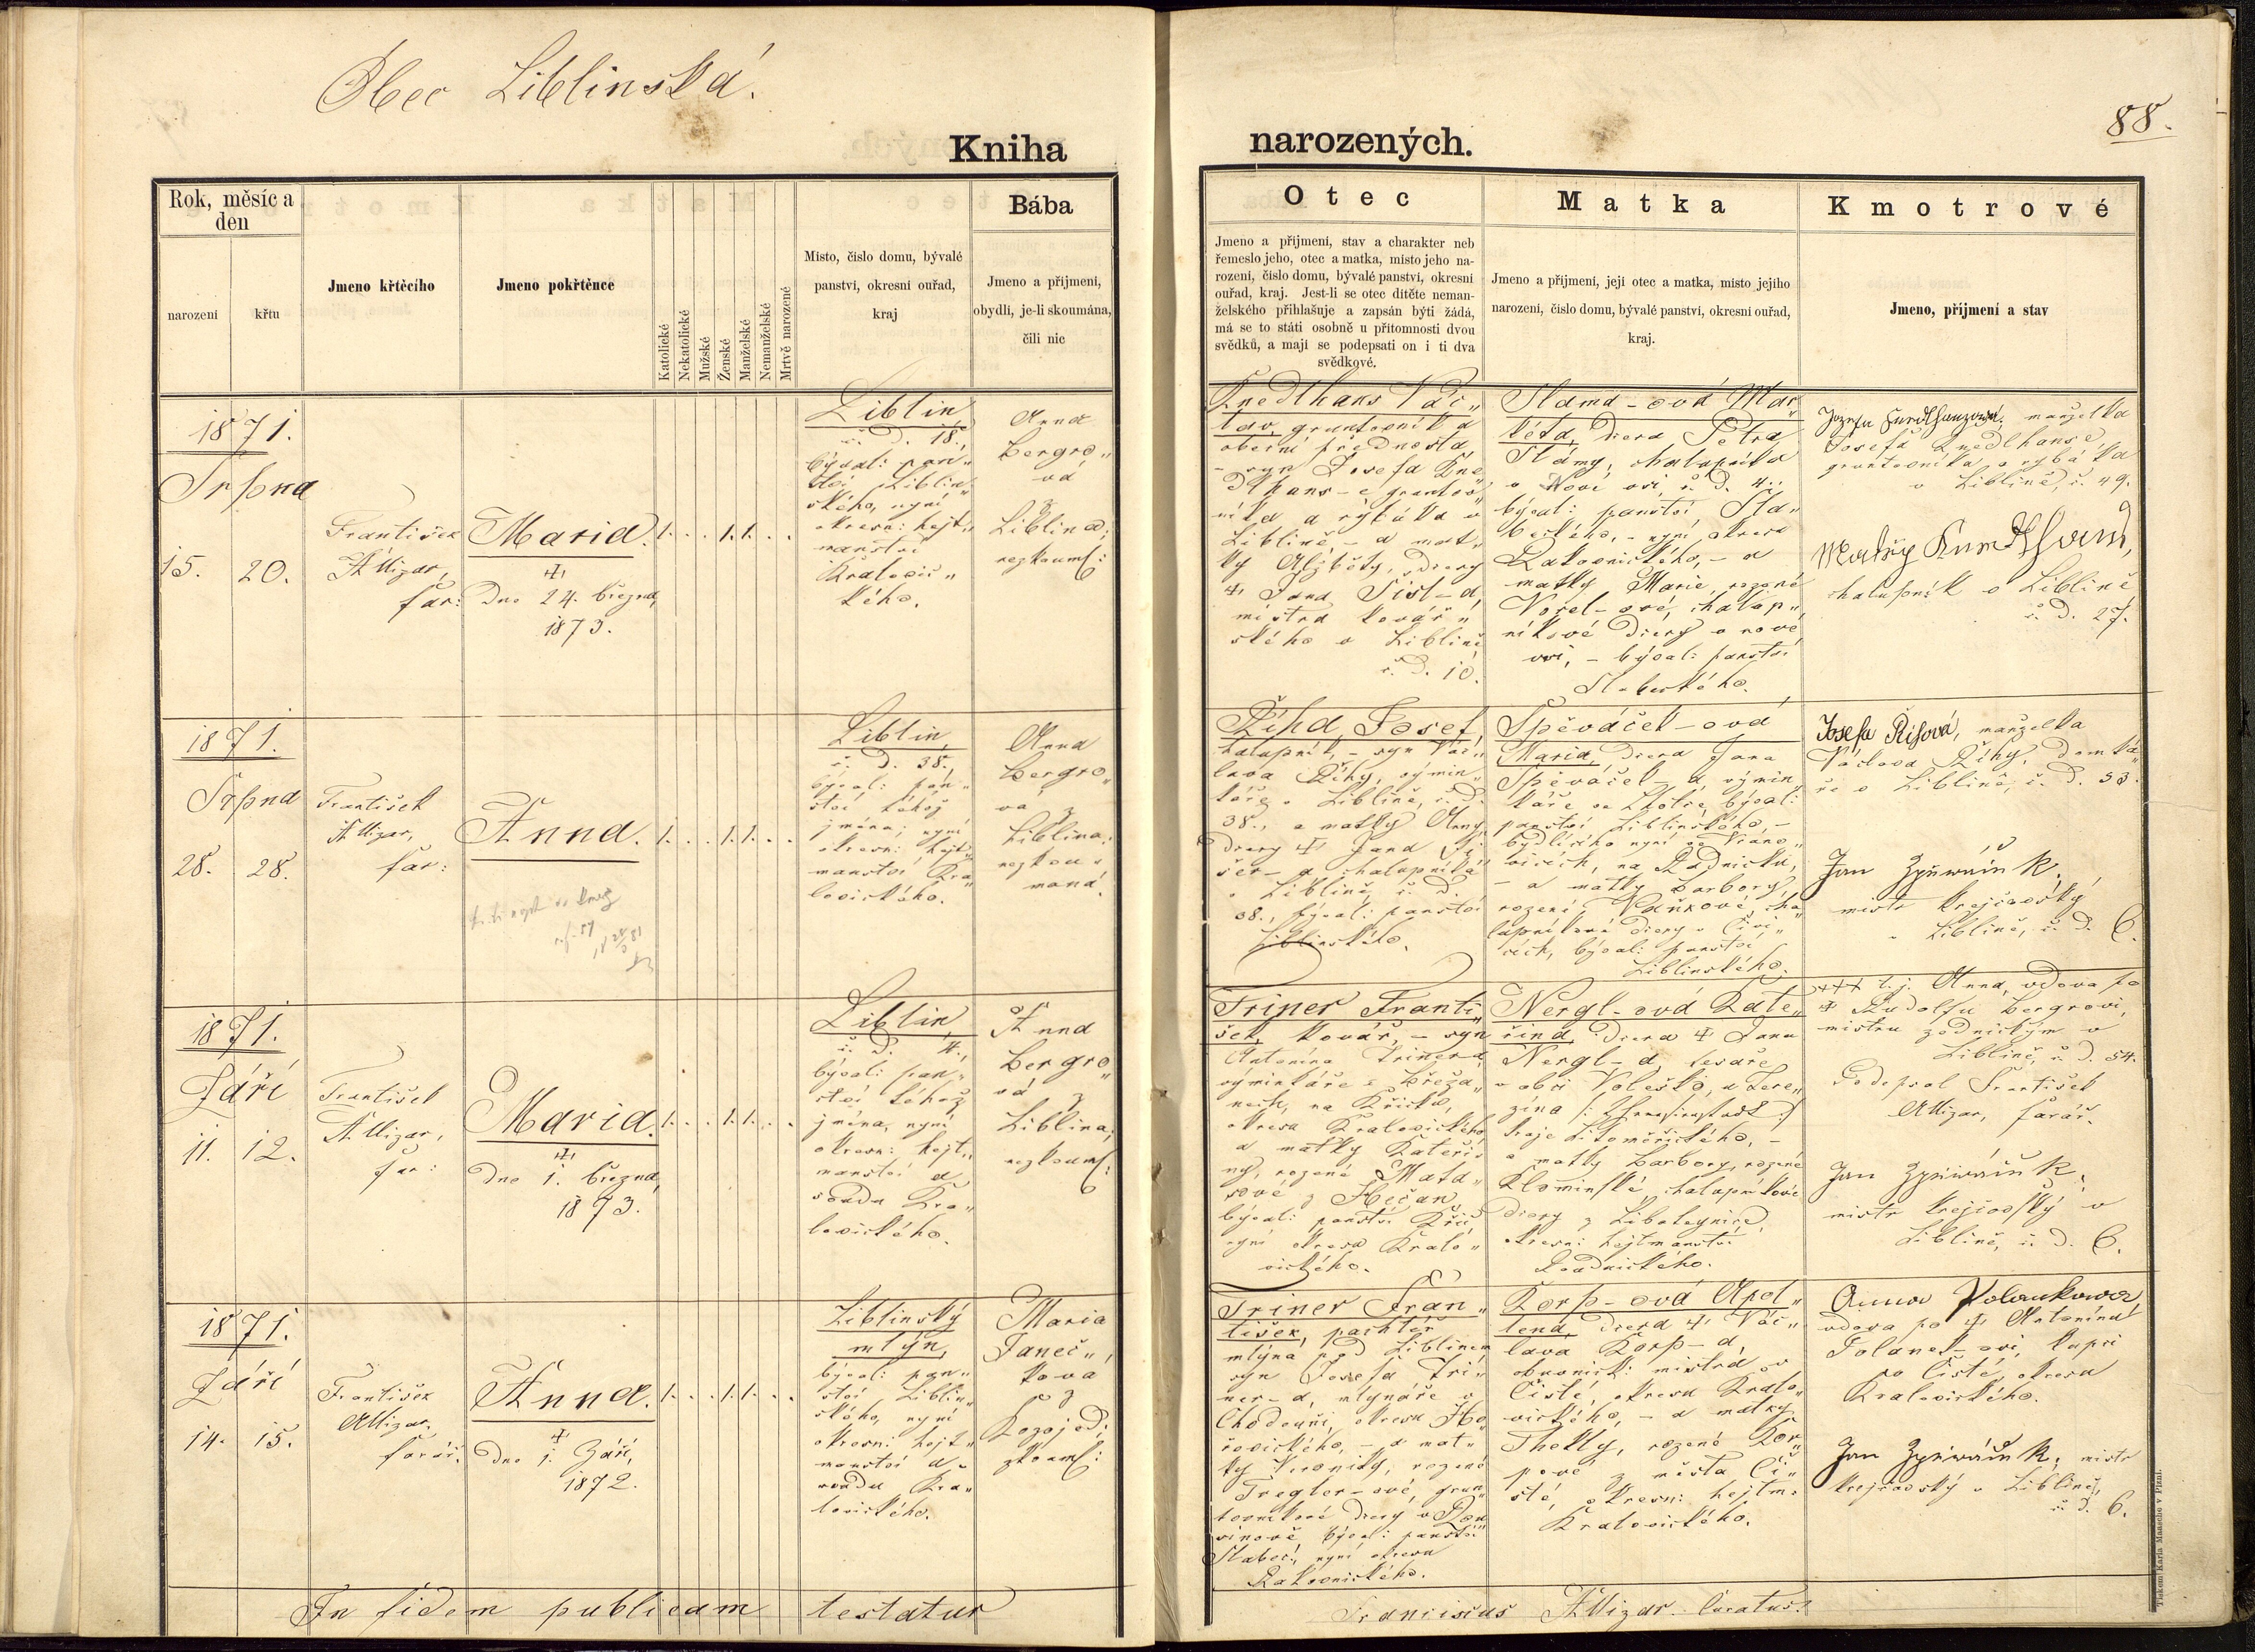 Obec Liblinská.
Kniha
narozených.
88.
Rok, měsíc a
den
narození
křtu
Jmeno křtěcího
Jmeno pokřtěnce
Katolické
Nekatolické
Mužské
Ženské
Manželské
Nemanželské
Mrtvě narozené
Místo, číslo domu, bývalé
panství, okresní ouřad,
kraj
Bába
Jmeno a příjmení,
obydlí, je-li skoumána,
čili nic
Otec
Jmeno a příjmení, stav a charakter neb
řemeslo jeho, otec a matka, místo jeho na-
rození, číslo domu, bývalé panství, okresní
ouřad, kraj. Jest-li se otec dítěte neman-
želského přihlašuje a zapsán býti žádá,
má se to státi osobně u přítomnosti dvou
svědků, a mají se podepsati on i ti dva
svědkové.
Matka
Jmeno a příjmení, její otec a matka, místo jejího
narození, číslo domu, bývalé panství, okresní ouřad,
kraj.
Kmotrové
Jmeno, příjmení a stav
1871.
Srpna
15. 20.
František
Allizar,
far:
Maria.
†
Dne 24. března,
1873.
1. . . 1. 1. . .
Liblín
č. D. 18.,
býval: pan„
ství Liblin„
ského, nyní
okresn: hejt„
manství
Kralovic„
kého.
Anna
Bergro„
vá
z
Liblína;
nezkouml:
Knedlhans Vác„
lav, gruntovník a
obecní přednosta,
– syn Josefa Kne„
dlhans-e gruntov„
níka a rybáka v
Liblíně – a mat„
ky Alžběty, dcery
† Jana Šisl-a,
mistra kovář„
ského v Liblíně
č. D. 10.
Slama-ová Mar„
kéta, dcera Petra
Slámy, chalupníka
v Nové vsi, č. D. 4.;
býval: panství Sla„
beckého, – nyní okresu
Rakovnického, – a
matky Marie, rozené
Vořel-ové, chalup„
níkové dcery v nové
vsi, – býval: panství
Slabeckého.
manželka
Josefa Knedlhanse,
gruntovníka a rybáka
v Liblíně, č. 49.
chalupník v Liblíně
č. D. 27.
1871.
Srpna
28. 28.
František
Allizar,
far:
Anna.
1. . . 1. 1. . .
Liblín,
č. D. 38.,
býval: pan„
ství téhož
jména; nyní
okresn: hejt„
manství Kra„
lovického.
Anna
Bergro„
vá z
Liblína;
nezkou„
maná.
Říha Josef,
chalupník, – syn Vác„
lava Říhy, výmin„
káře v Liblíně, č. D.
38., a matky Anny,
dcery † Jana
chalupníka
v Liblíně, č. D.
38., býval: panství
Liblinského.
Spěváček-ová
Maria, dcera Jana
Spěváček-a, výmin„
káře ve Lhotce, býval:
panství Liblinského, –
bydlícího nyní ve Vrano„
vicích, na Radnicku,
– a matky Barbory,
rozené Vaňkové, cha„
lupníkové dcery v Čivi„
cích, býval: panství
Liblinského.
Josefa Řihová, manželka
Václava Říhy, domká„
ře v Liblíně, č. D. 53.
Jan Zpěwáček,
mistr krejčovský
v Liblíně, č. D. 6.
1871.
Září
11. 12.
František
Allizar,
far:
Maria.
†
Dne 1. března,
1873.
1. . . 1. 1. . .
Liblín,
č. D. 4.,
býval: pan„
ství téhož
jména, nyní
okresn: hejt„
manství a
soudu Kra„
lovického.
Anna
Bergro„
vá z
Liblína;
nezkouml:
Triner Franti„
šek, kovář, – syn
Antonína Triner-a,
výminkáře v Březa„
nech, na Křičku,
okresu Kralovického,
a matky Kateři„
ny, rozené Mata„
sové z Hřečan,
býval: panství Kříč,
nyní okresu Kralo„
vického.
Nergl-ová Kate„
řina, dcera † Jana
Nergl-a, tesaře
v obci Voleško, u Tere„
zína
kraje Litoměřického, –
a matky Barbory, rozené
Klominské, chalupníkové
dcery z Libotejnice,
okresní hejtmanství
Roudnického.
††† t. j. Anna, vdova po
† Rudolfu Bergrovi,
mistru zednickým v
Liblíně, č. D. 54.
Podepsal František
Allizar, farář.
Jan Zpěwáček,
mistr krejčovský v
Liblíně, č. D. 6.
1871.
Září
14. 15.
František
Allizar,
farář.
Anna.
†
Dne 1. Září,
1872.
1. . . 1. 1. . .
Liblinský
mlýn,
býval: pan„
ství Liblin„
ského, nyní
okresn: hejt„
manství a
soudu Kra„
lovického.
Maria
Janeč„
kova
z
Kozojed;
zkouml:
Triner Fran„
tišek, pachtýř
mlýna pod Liblínem,
syn Josefa Tri„
ner-a, mlynáře v
Chodouni, okresu Ho„
řovického, – a mat„
ky Veroniky, rozené
Tregler-ové, grun„
tovníkové dcery v Pan
býval: panství
Slabec, nyní okresu
Rakovnického.
Korp-ová Apol„
lena, dcera † Vác„
lava Korp-a,
obuvnick: mistra v
Čisté, okresu Kralo„
vického, – a matky
Thekly, rozené Kor„
pové z města Či„
sté, okresní hejtm:
Kralovického.
Anna Polankowa
vdova po † Antonínu
Polanek-ovi, kupci
v Čisté, okresu
Kralovického.
Jan Zpěwáček, mistr
krejčovský v Liblíně,
č. D. 6.
In fidem publicam testatur
Franciscus Allizar. Curatus.
Tiskem Karla Maascha v Plzni.